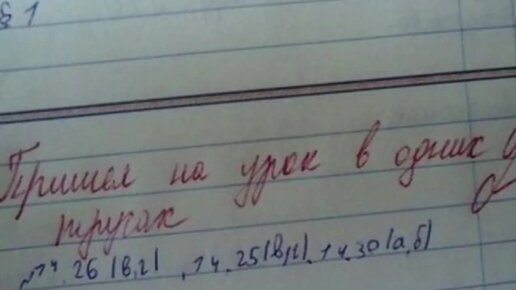 § 1
Пришел на урок в одних
трусах
№14.26(в,г), 14.25(в,г), 14.30(а,б)